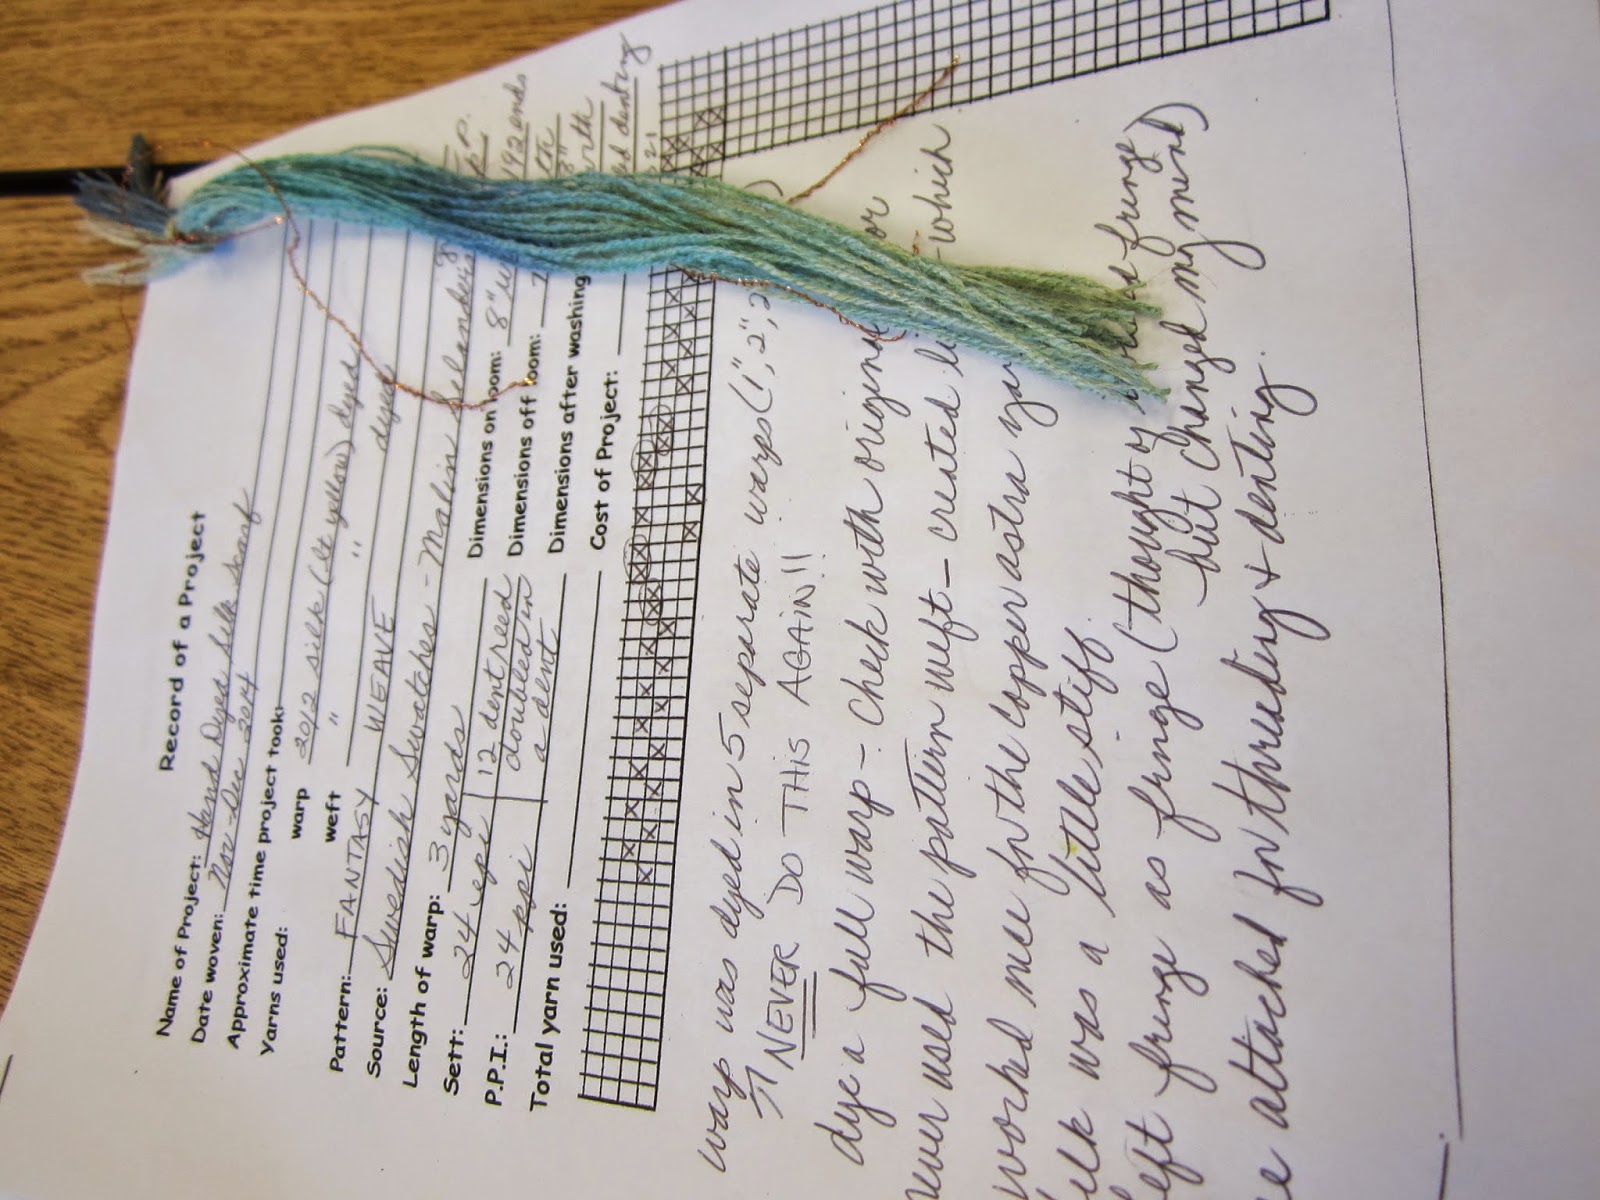 Record of a Project
Name of Project: Hand Dyed Silk Scarf
Date woven: Nov-Dec 2014
Approximate time project took:
Yarns used: warp 20/2 silk (lt yellow) dyed
weft " " dyed
Pattern: FANTASY WEAVE
Source: Swedish Swatches - Malin Selander
Length of warp: 3 yards
Dimensions on loom: 8" 192 ends
Sett: 24 epi 12 dent reed
Dimensions off loom:
P.P.I.: 24 ppi doubled in
a dent
Dimensions after washing
Total yarn used:
Cost of Project:
denting
warp was dyed in 5 separate warps (1", 2", 2
NEVER DO THIS AGAIN!!
dye a full warp - Check with or
never used the pattern weft - created which
worked nice for the copper astra
silk was a little stiff.
left fringe as fringe (thought of fringe)
but changed my mind)
attached for threading + denting.